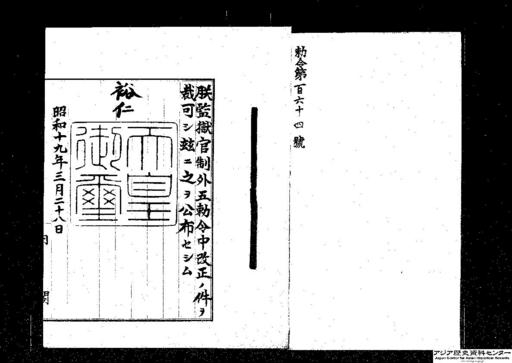 勅令第百六十四號
朕監獄官制外五勅令中改正ノ件ヲ
裁可シ茲ニ之ヲ公布セシム
裕仁
天皇
御璽
昭和十九年三月二十八日
アジア歴史資料センター
Japan Center for Asian Historical Records